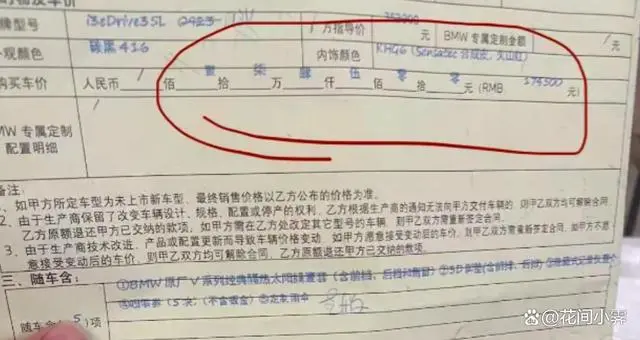 车价
牌型号 i3eDrive35L 厂方指导价 元 BMW 专属定制金额
观颜色 碳黑416 内饰颜色 KHG6 (Sensatec
购买车价 人民币 / 佰 壹 拾 柒 万 肆 仟 伍 佰 零 拾 零 元 (RMB 174500 元)
MW 专属定制
配置明细
备注:
1、如甲方所定车型为未上市新车型,最终销售价格以乙方公布的价格为准。
2、由于生产商保留了改变车辆设计、规格、配置或停产的权利,乙方根据生产商的通知无法向甲方交付车辆的,则甲乙双方均可解除合同,
乙方原额退还甲方已交纳的款项。如甲方需在乙方处改定其它型号的车辆,则甲乙双方需重新签定合同。
3、由于生产商技术改进、产品或配置更新而导致车辆价格变动,如甲方愿意接受变动后的车价,则甲乙双方需重新签定合同,如甲方不愿
意接受变动后的车价,则甲乙双方均可解除合同,乙方原额退还甲方已交纳的款项。
三、随车含:
①BMW原厂V系列经典隔热太阳膜装潢(含前挡、后挡和侧窗)
随车含(5)项 (5次:(不含钣金)
百家号/花间小霁